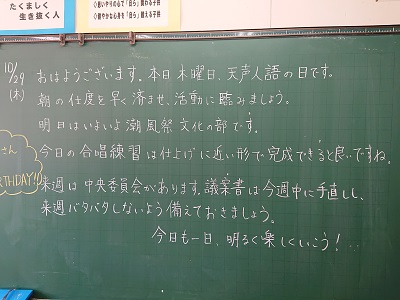 たくましく
生き抜く人
◇思いやりの心で「自ら」関わる子供
◇健やかな心身を「自ら」鍛える子供
10/29
(木)
おはようございます。本日木曜日、天声人語の日です。
朝の仕度を早く済ませ、活動に臨みましょう。
明日はいよいよ潮風祭文化の部です。
今日の合唱練習は仕上げに近い形で完成できると良いですね。
来週は中央委員会があります。議案書は今週中に手直しし、
来週バタバタしないよう備えておきましょう。
今日も一日、明るく楽しくいこう!
さん
BIRTHDAY!